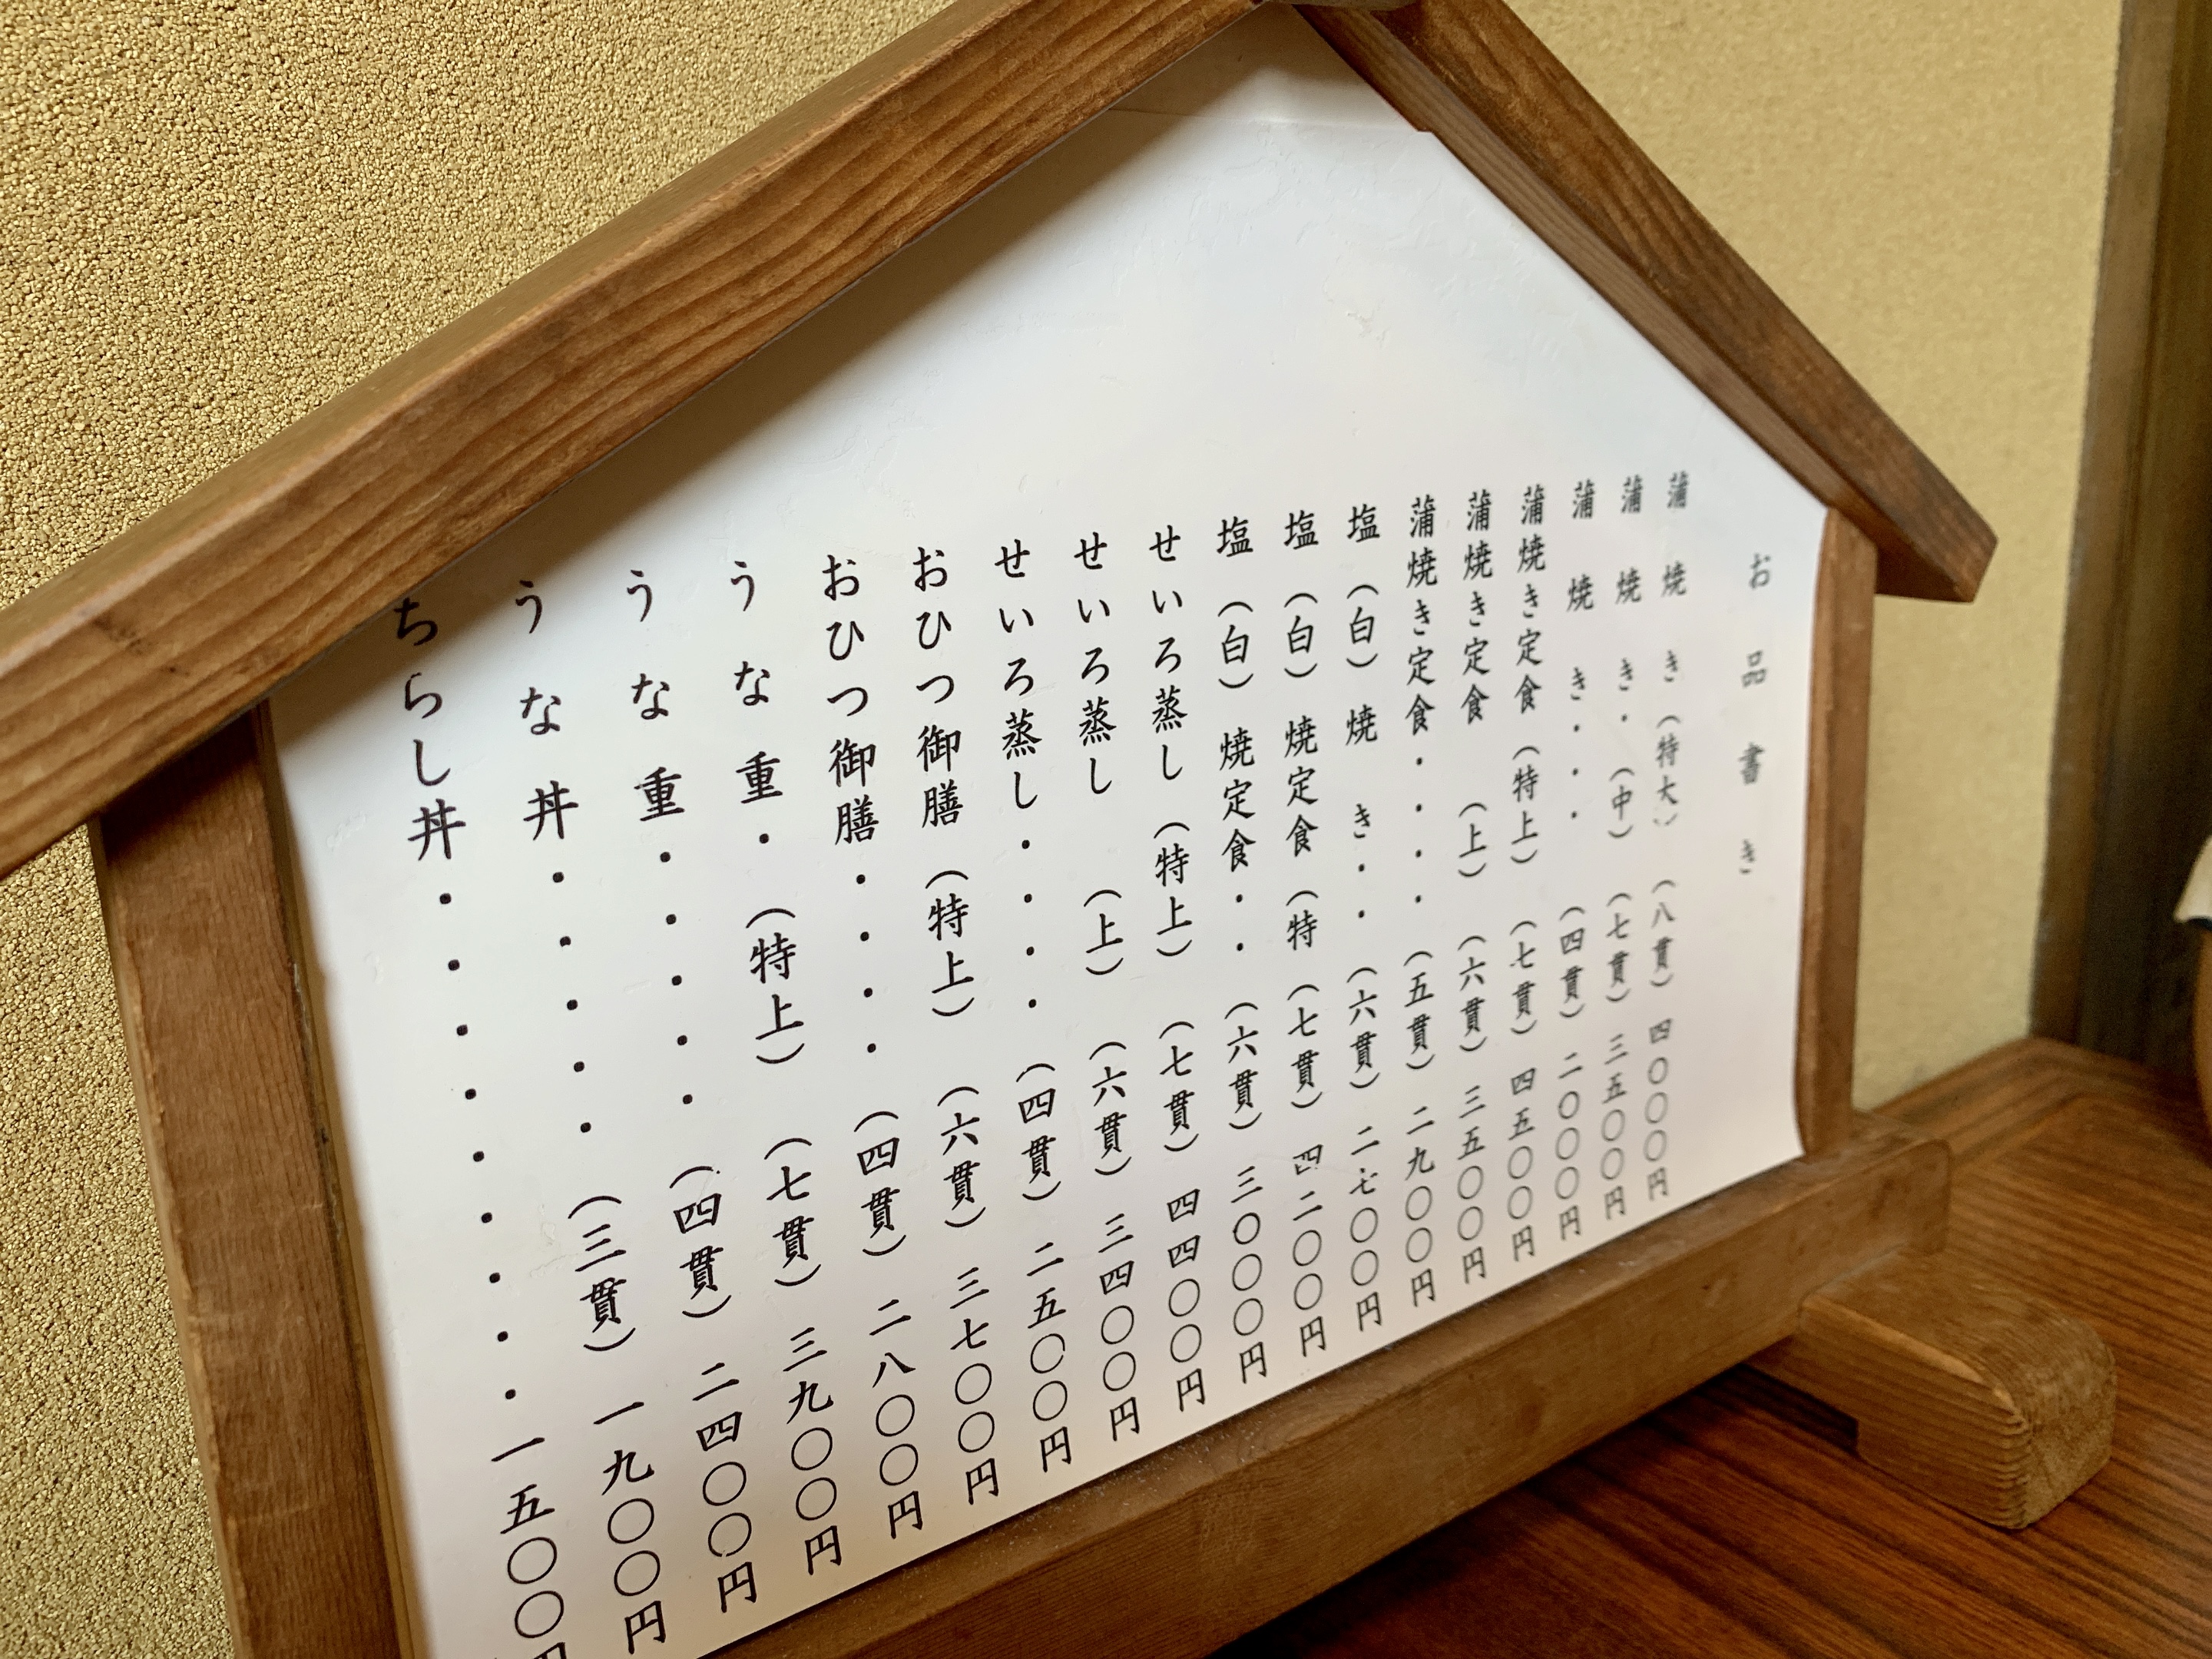 お品書き
蒲焼き（特大）（八貫）四〇〇〇円
蒲焼き・（中）（七貫）三五〇〇円
蒲焼き・・・（四貫）二〇〇〇円
蒲焼き定食（特上）（七貫）四五〇〇円
蒲焼き定食（上）（六貫）三五〇〇円
蒲焼き定食・・・・（五貫）二九〇〇円
塩（白）焼き・・（六貫）二七〇〇円
塩（白）焼定食（特（七貫）四二〇〇円
塩（白）焼定食・・（六貫）三〇〇〇円
せいろ蒸し（特上）（七貫）四四〇〇円
せいろ蒸し（上）（六貫）三四〇〇円
せいろ蒸し・・・・（四貫）二五〇〇円
おひつ御膳（特上）（六貫）三七〇〇円
おひつ御膳・・・・（四貫）二八〇〇円
うな重・（特上）（七貫）三九〇〇円
うな重・・・・・（四貫）二四〇〇円
うな丼・・・・・（三貫）一九〇〇円
ちらし丼・・・・・・・・・一五〇〇円